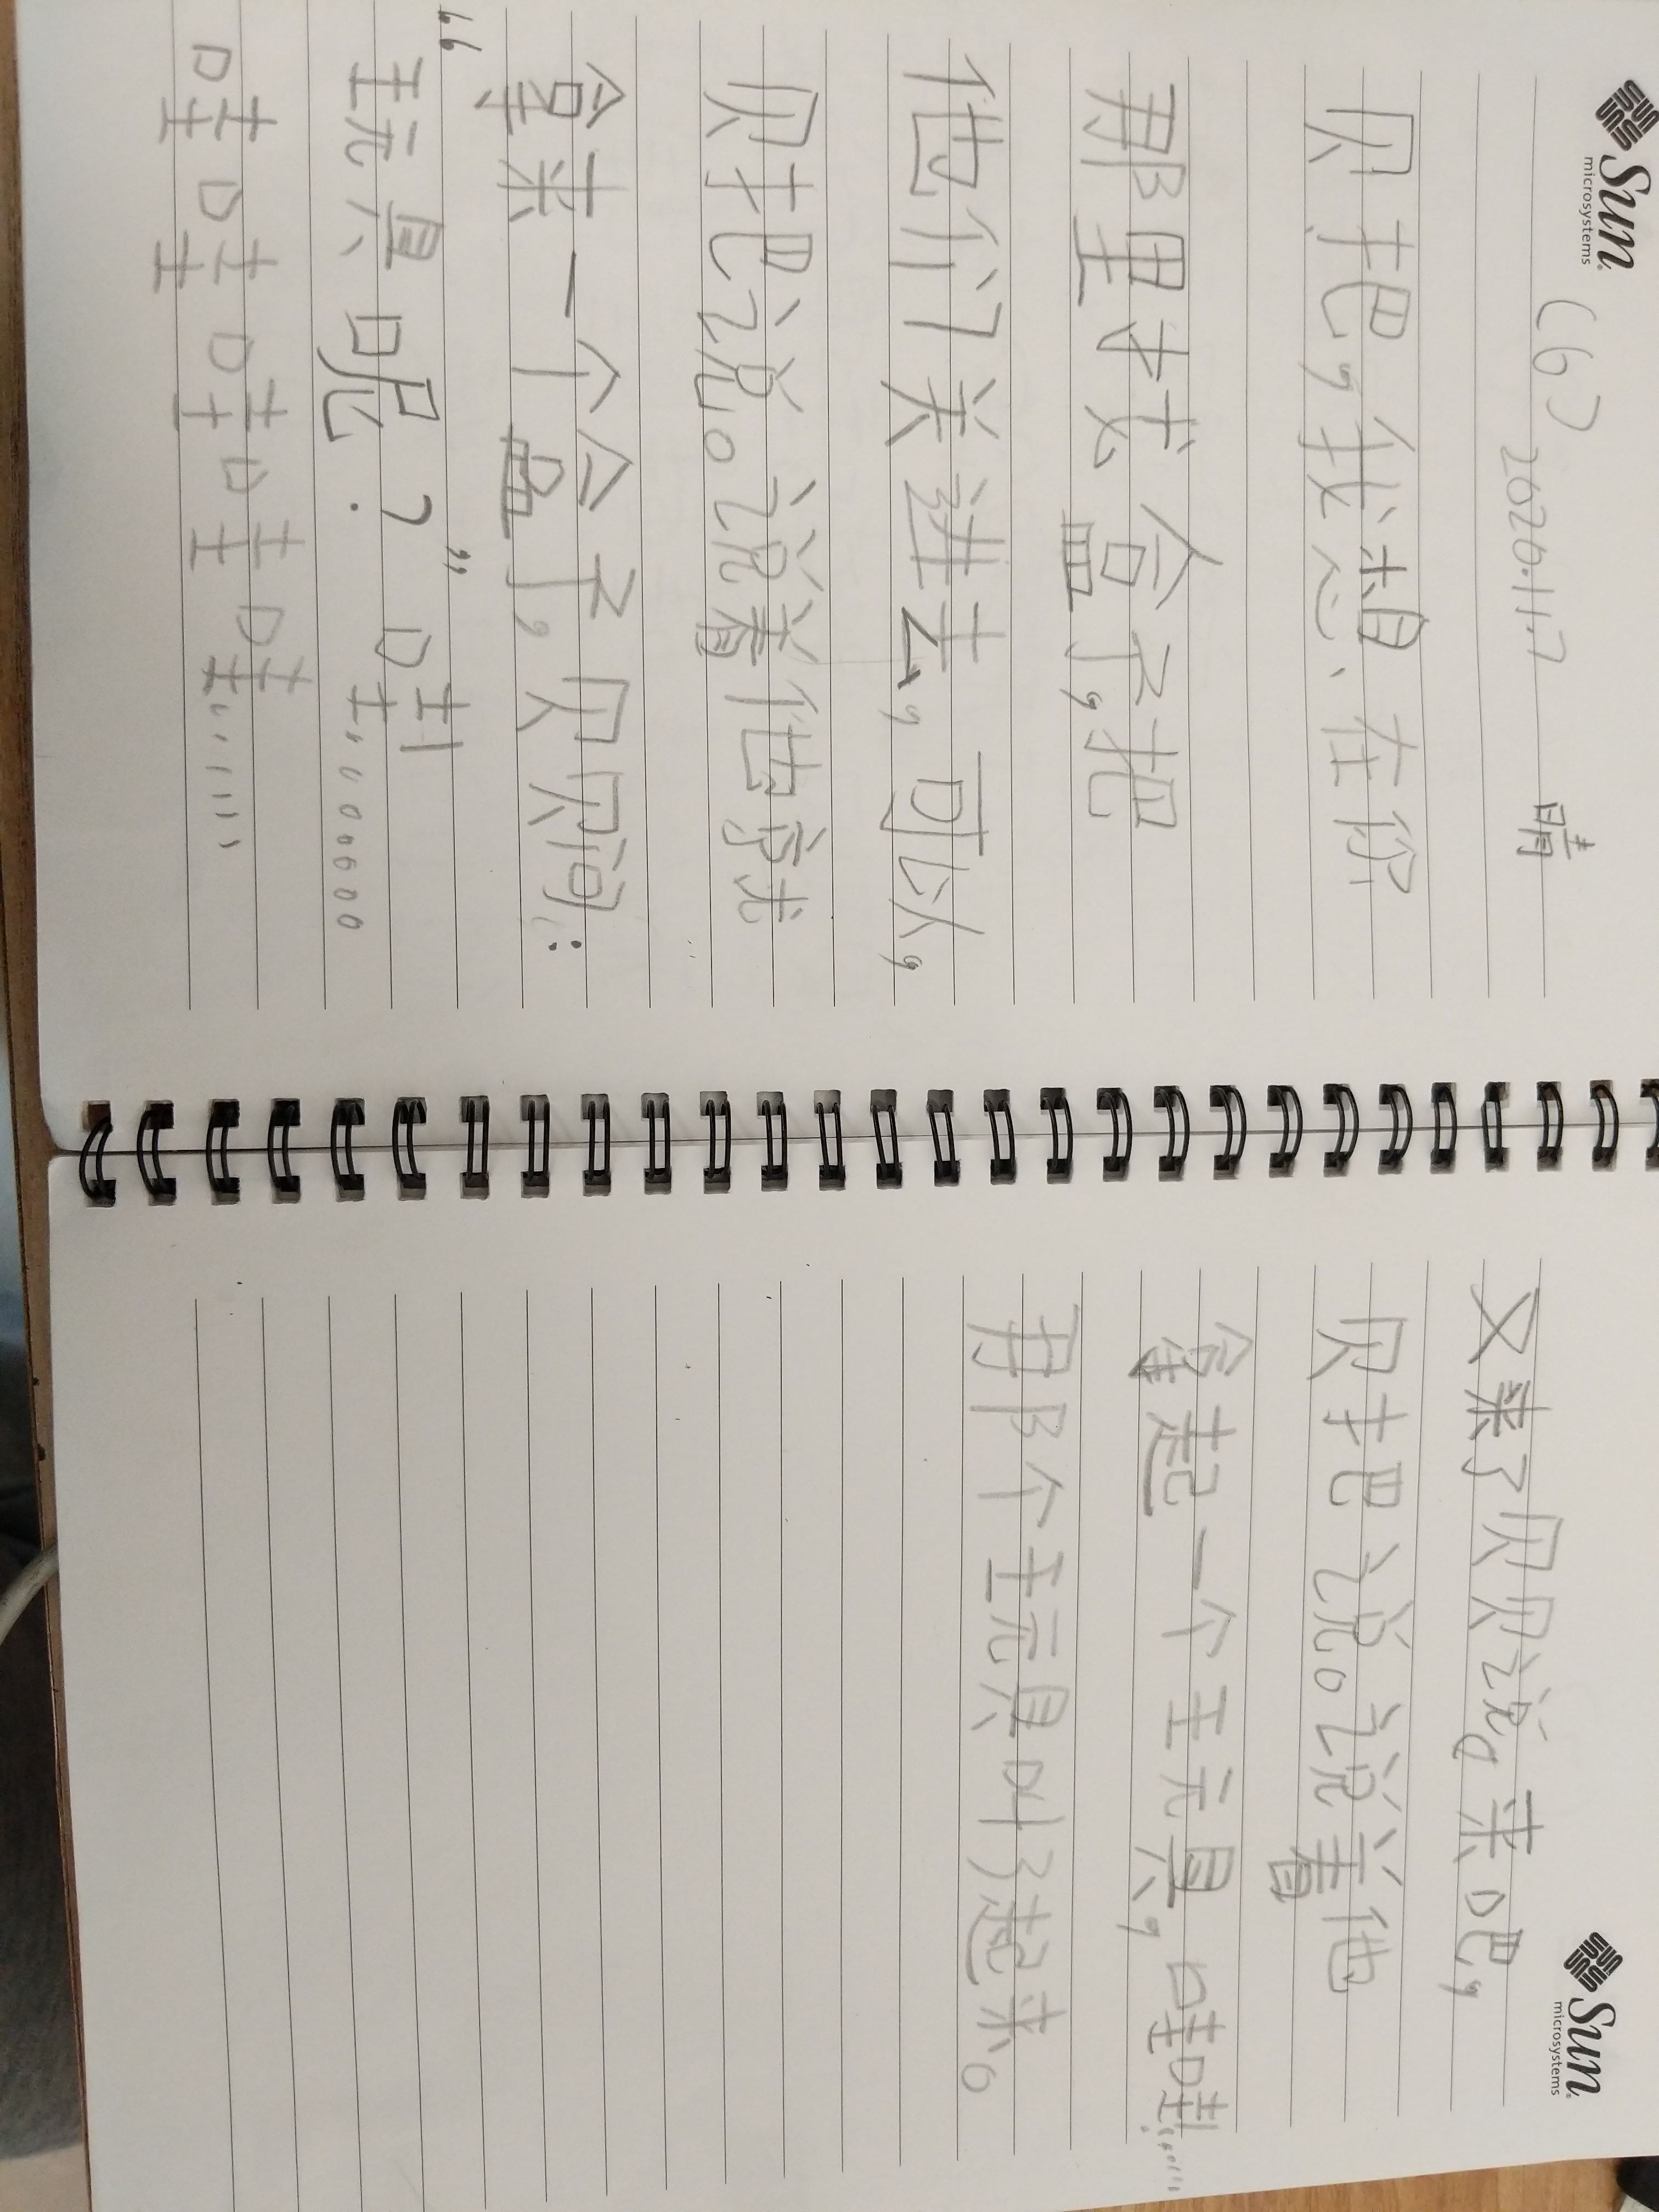 Sun
microsystems
(6)
2020.11.7 晴
贝扎把，我想、在你
那里找盒子，把
他们关进去，可以，
贝扎把说。说着他就
拿来一个盒子，贝贝问：
“玩具呢？”哇……
哇哇哇哇哇……
Sun
microsystems
又来了贝贝说。来吧，
贝扎把说。说着他
拿起一个玩具，哇哇……
那个玩具叫了起来。